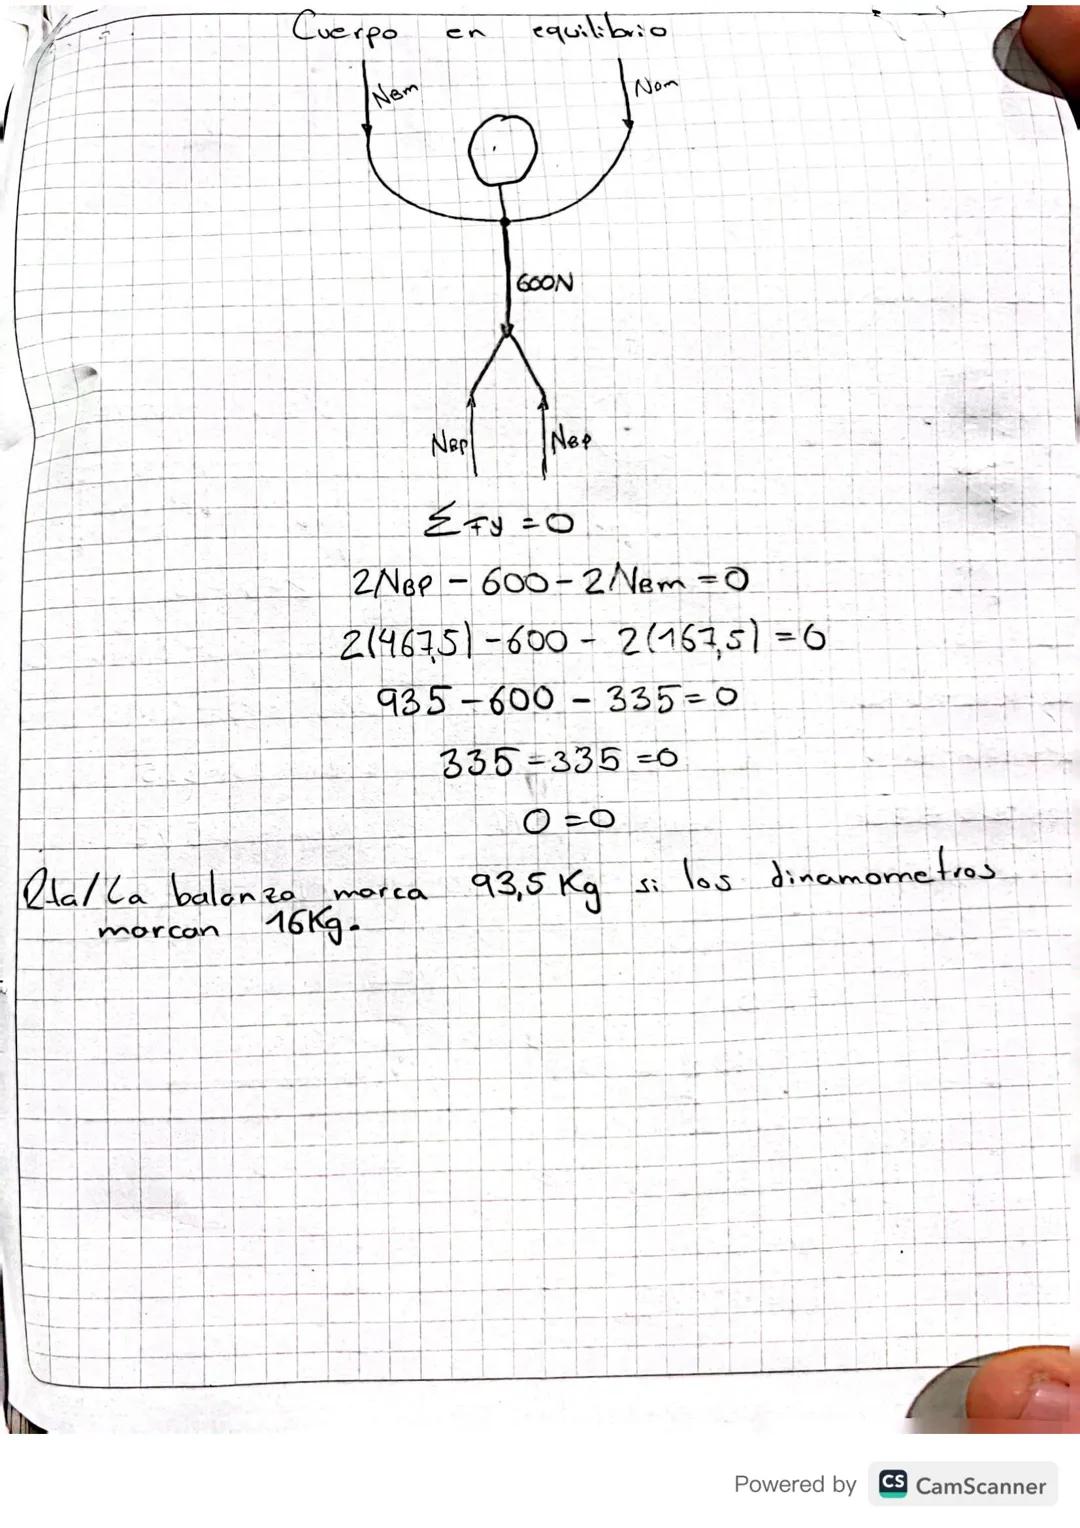 Cuerpo en equilibrio
NBm
Nom
600N
NBP
NBP
Σ Fy = 0
2NBP - 600 - 2NBm = 0
2(467,5) - 600 - 2(167,5) = 0
935 - 600 - 335 = 0
335 - 335 = 0
0 = 0
Rta/ La balanza marca 93,5 Kg si los dinamometros
marcan 16Kg.
Powered by CS CamScanner